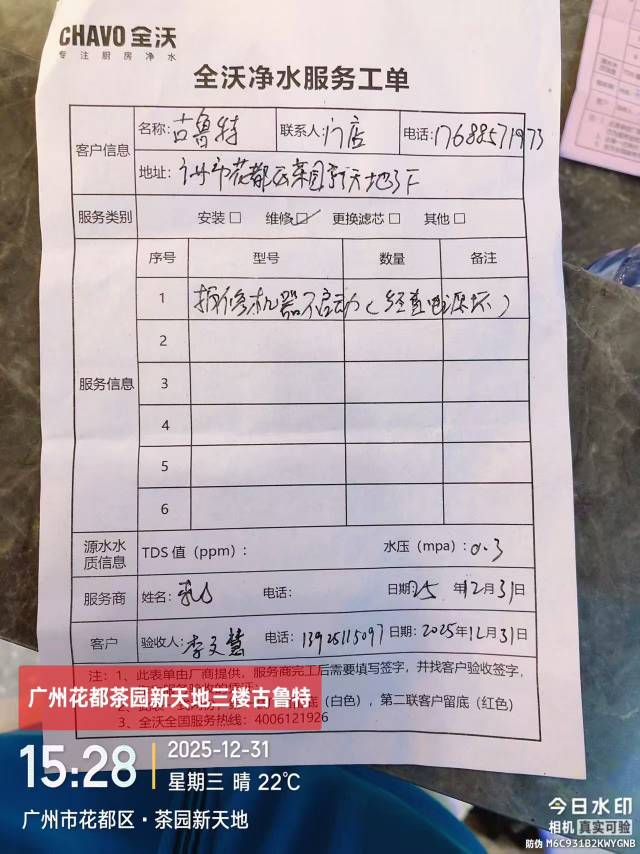 CHAVO 全沃
专注厨房净水
全沃净水服务工单
客户信息
名称: 古鲁特 联系人: 门店 电话: 17688571973
地址: 广州市花都区茶园新天地3F
服务类别 安装□ 维修☑ 更换滤芯□ 其他□
服务信息
序号 型号 数量 备注
1 报修机器不启动(经查电源坏)
2
3
4
5
6
源水水质信息 TDS 值(ppm): 水压(mpa): 0.3
服务商 姓名: 电话: 日期: 25 年12月31日
客户 验收人: 李文慧 电话: 13925115097 日期: 2025年12月31日
注: 1、此表单由厂商提供,服务商完工后需要填写签字,并找客户验收签字,
(白色),第二联客户留底(红色)
3、全沃全国服务热线: 4006121926
广州花都茶园新天地三楼古鲁特
15:28 2025-12-31
星期三 晴 22℃
广州市花都区·茶园新天地
今日水印
相机 真实可验
防伪 M6C931B2KWYGNB